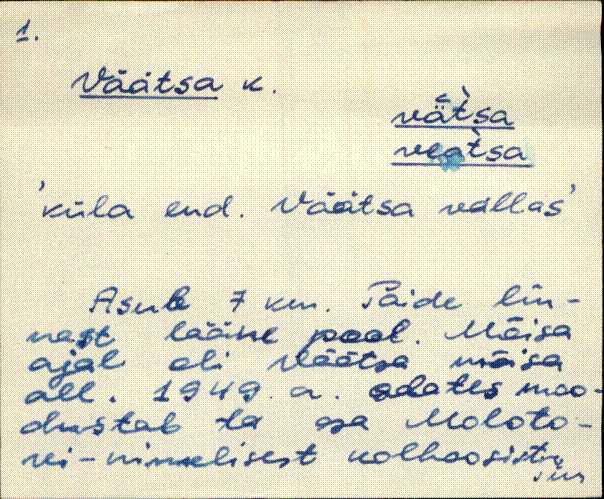 1.
Väätsa k.
vätsa
veatsa
'küla end. Väätsa vallas'
Asub 7 km. Paide lin-
nast lääne pool. Mõisa
ajal oli Väätsa mõisa
all. 1949. a. alates moo-
dustab ta osa Moloto-
vi-nimelisest kolhoosist
siin